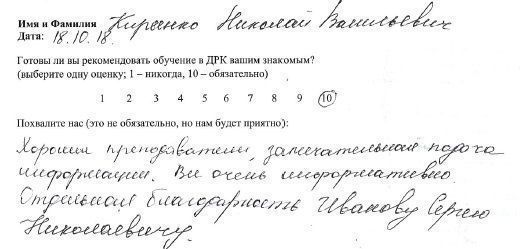 Имя и Фамилия Киреенко Николай Васильевич
Дата: 18.10.18.
Готовы ли вы рекомендовать обучение в ДРК вашим знакомым?
(выберите одну оценку; 1 – никогда, 10 – обязательно)
1 2 3 4 5 6 7 8 9 10
Похвалите нас (это не обязательно, но нам будет приятно):
Хорошие преподаватели, замечательная подача
информации. Все очень информативно
Отдельная благодарность Иванову Сергею
Николаевичу.